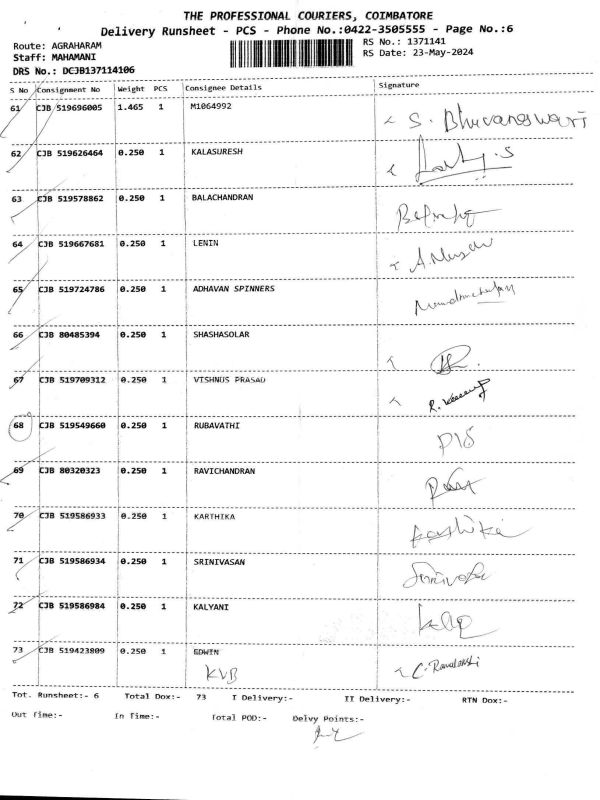 THE PROFESSIONAL COURIERS, COIMBATORE
Delivery Runsheet - PCS - Phone No.:0422-3505555 - Page No.:6
Route: AGRAHARAM RS No.: 1371141
Staff: MAHAMANI RS Date: 23-May-2024
DRS No.: DCJB137114106
S No Consignment No Weight PCS Consignee Details Signature
61 CJB 519696005 1.465 1 M1064992 S. Bhuvaneswari
62 CJB 519626464 0.250 1 KALASURESH
63 CJB 519578862 0.250 1 BALACHANDRAN
64 CJB 519667681 0.250 1 LENIN
65 CJB 519724786 0.250 1 ADHAVAN SPINNERS
66 CJB 80485394 0.250 1 SHASHASOLAR
67 CJB 519709312 0.250 1 VISHNUS PRASAD
68 CJB 519549660 0.250 1 RUBAVATHI
69 CJB 80320323 0.250 1 RAVICHANDRAN
70 CJB 519586933 0.250 1 KARTHIKA
71 CJB 519586934 0.250 1 SRINIVASAN
72 CJB 519586984 0.250 1 KALYANI
73 CJB 519423809 0.250 1 EDWIN
KVB
Tot. Runsheet:- 6 Total Dox:- 73 I Delivery:- II Delivery:- RTN Dox:-
Out Time:- In Time:- Total POD:- Delvy Points:-